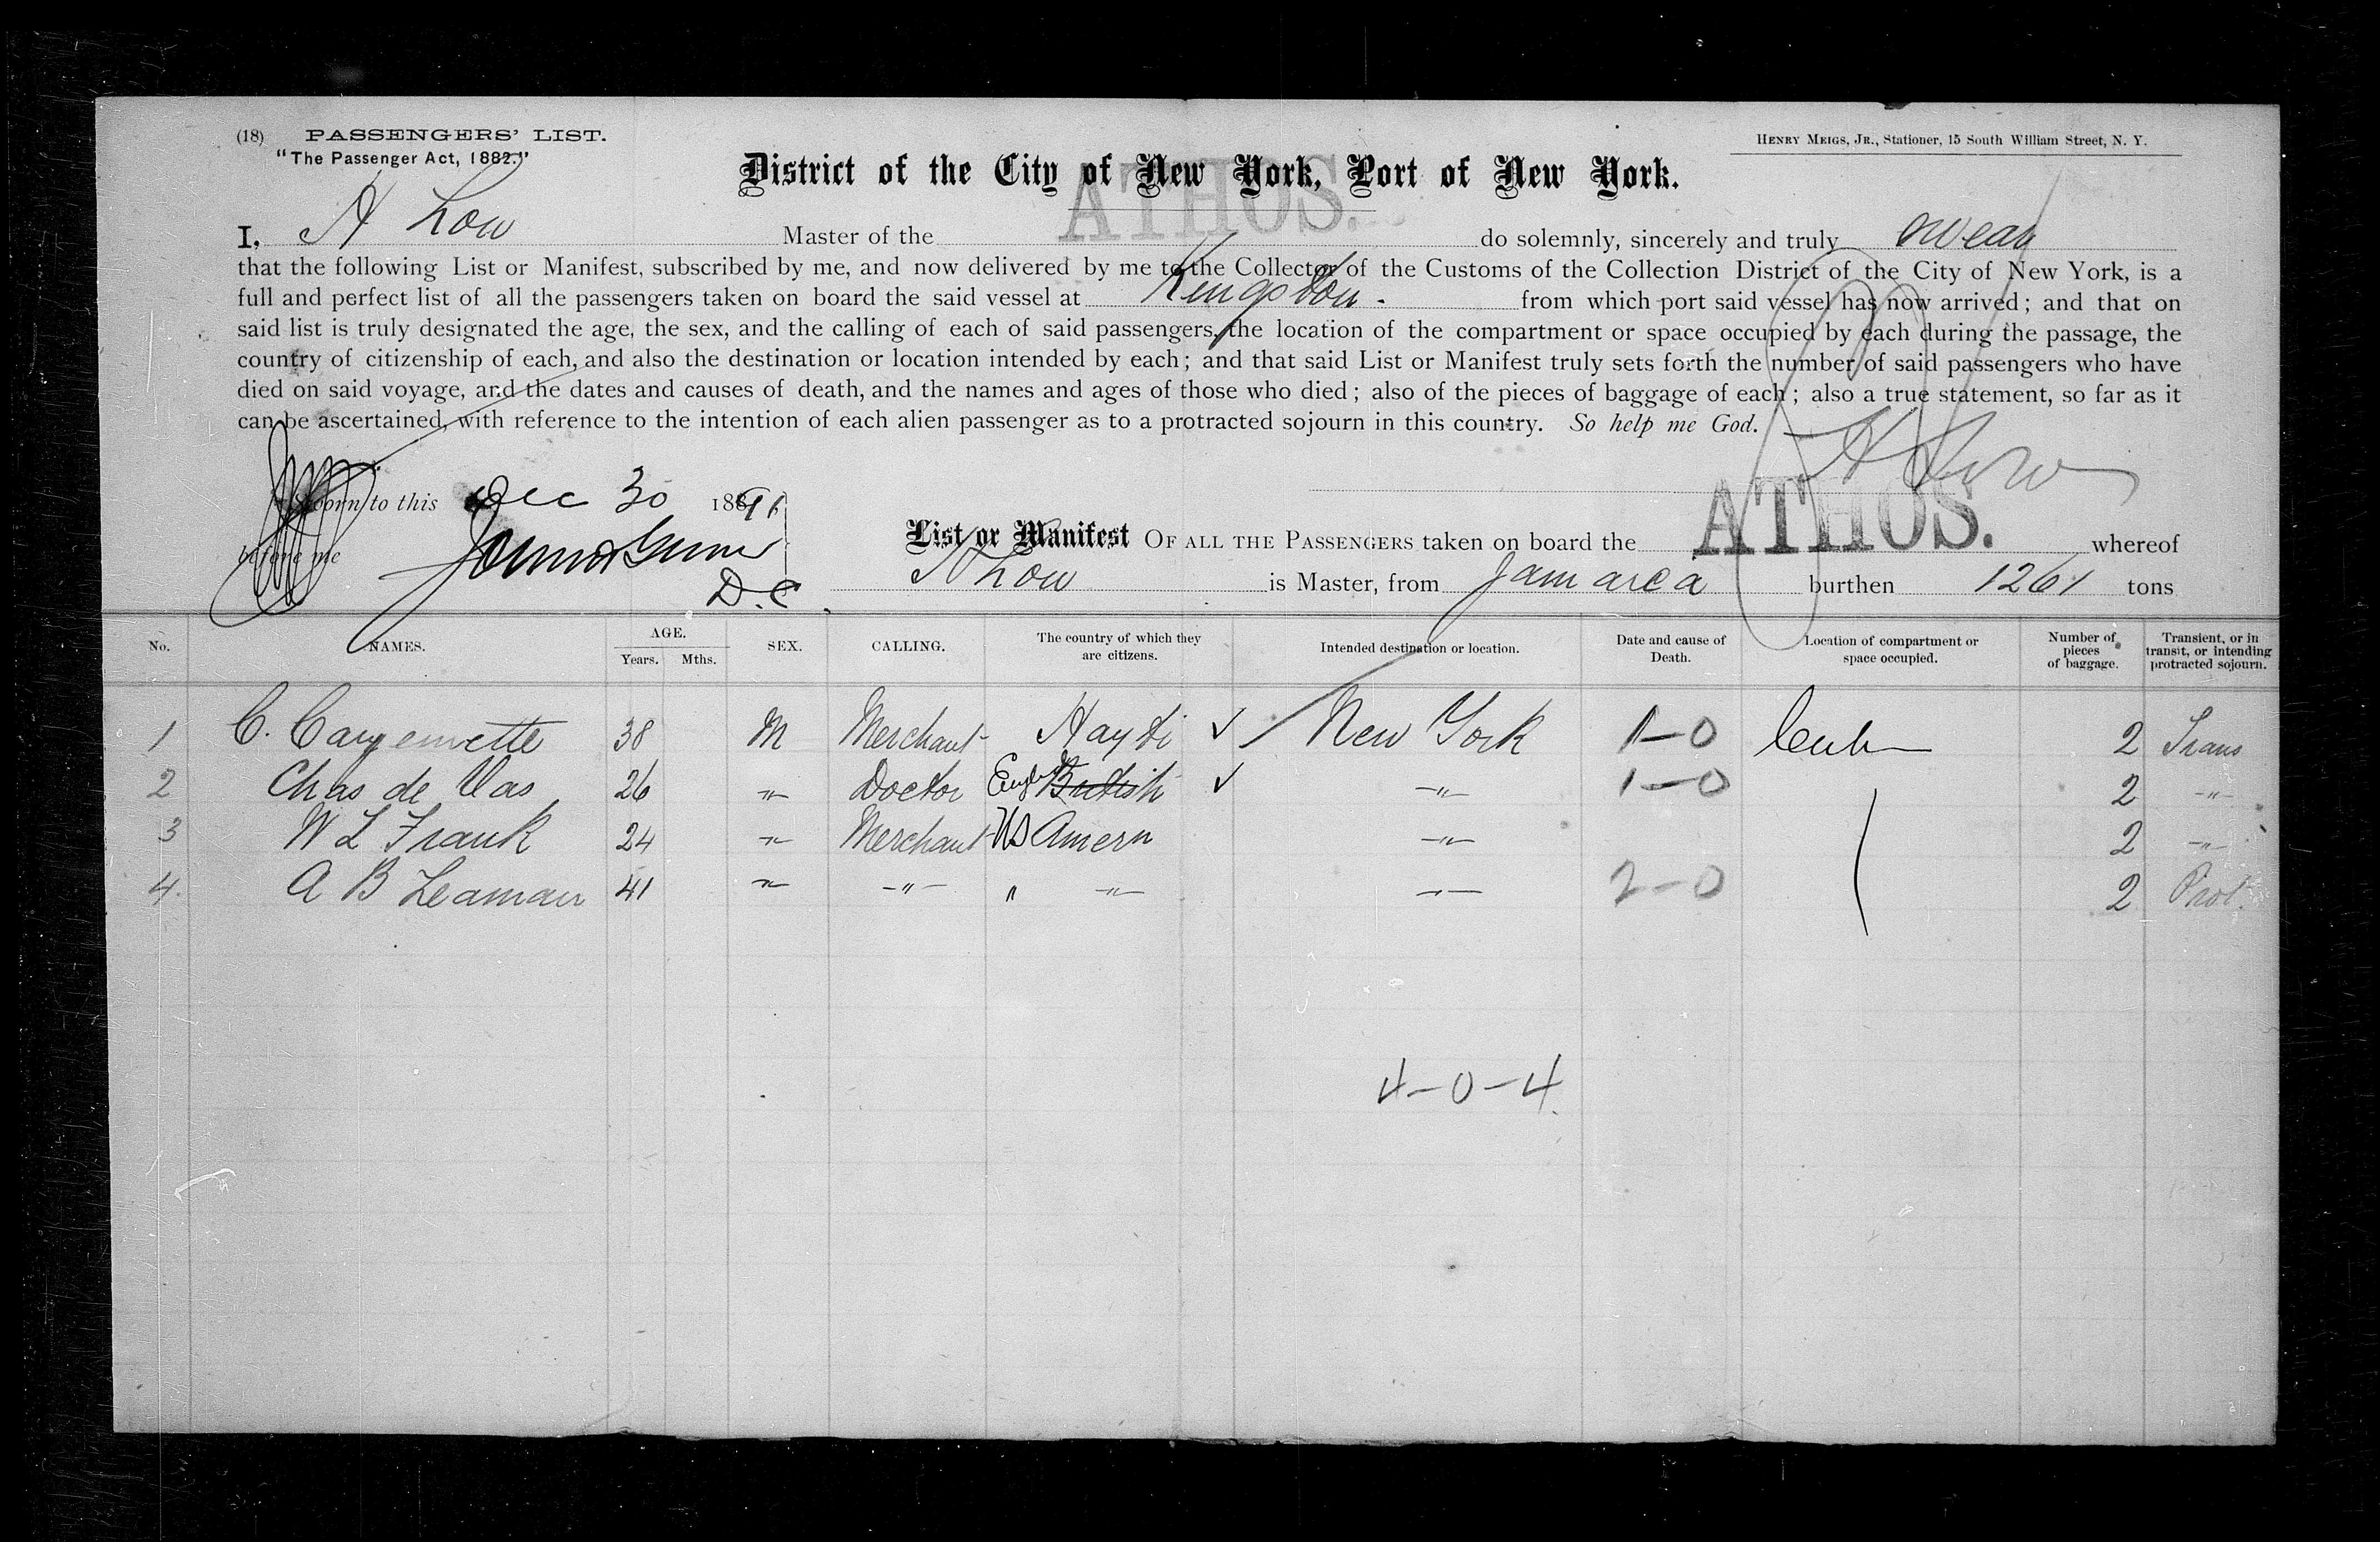 (18) PASSENGERS' LIST.
"The Passenger Act, 1882."
HENRY MEIGS, JR., Stationer, 15 South William Street, N. Y.
District of the City of New York, Port of New York.
I, A Low Master of the ATHOS. do solemnly, sincerely and truly swear
that the following List or Manifest, subscribed by me, and now delivered by me to the Collector of the Customs of the Collection District of the City of New York, is a
full and perfect list of all the passengers taken on board the said vessel at Kingston. from which port said vessel has now arrived; and that on
said list is truly designated the age, the sex, and the calling of each of said passengers, the location of the compartment or space occupied by each during the passage, the
country of citizenship of each, and also the destination or location intended by each; and that said List or Manifest truly sets forth the number of said passengers who have
died on said voyage, and the dates and causes of death, and the names and ages of those who died; also of the pieces of baggage of each; also a true statement, so far as it
can be ascertained, with reference to the intention of each alien passenger as to a protracted sojourn in this country. So help me God.
A Low
Sworn to this Dec 30 1891
before me
D.C.
List or Manifest OF ALL THE PASSENGERS taken on board the ATHOS. whereof
A Low is Master, from Jamaica burthen 1261 tons
No. NAMES. AGE. Years. Mths. SEX. CALLING. The country of which they are citizens. Intended destination or location. Date and cause of Death. Location of compartment or space occupied. Number of pieces of baggage. Transient, or in transit, or intending protracted sojourn.
1 C. 38 M Merchant Hayti ✓ New York 1-0 2 Trans
2 Chas de Vas 26 -"- Doctor British ✓ -"- 1-0 2 -"-
3 W L Frank 24 -"- Merchant US Amern -"- 2 -"-
4. A B Leaman 41 -"- -"- " -"- -"- 2-0 2 Prot.
4-0-4.